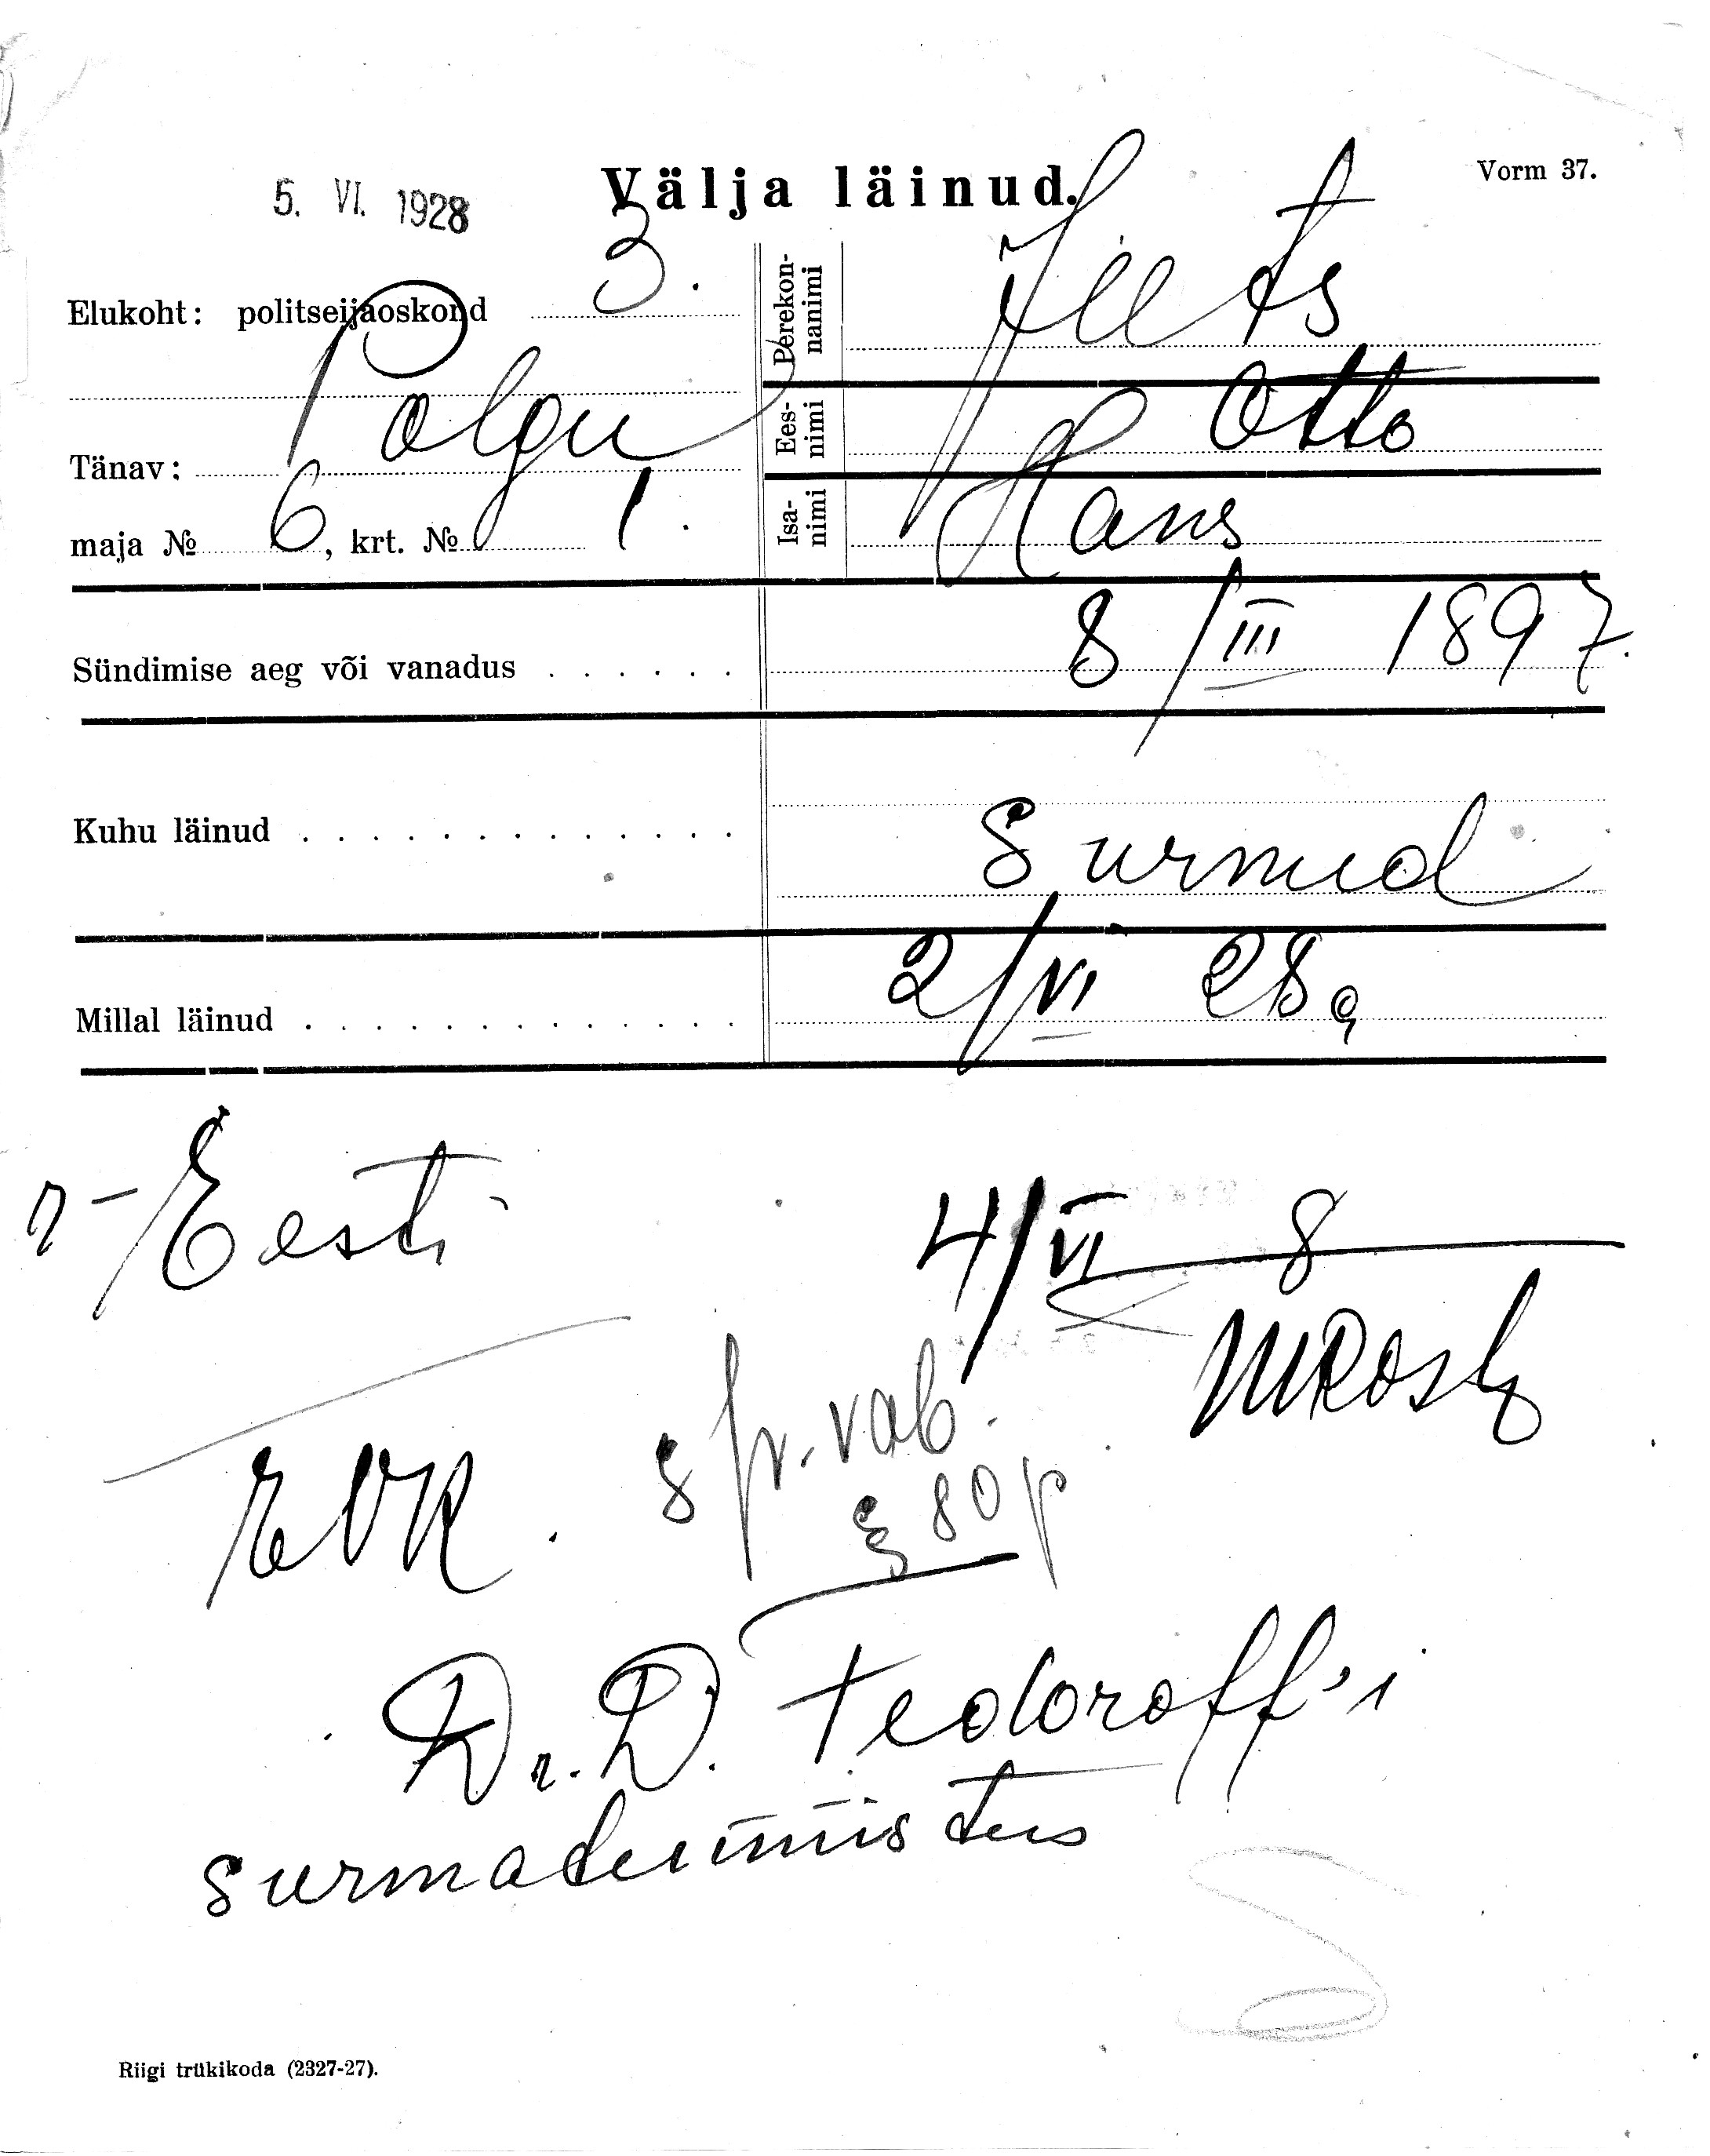 5. VI. 1928
Välja läinud.
Vorm 37.
Elukoht: politseijaoskond 3.
Tänav: Polgu
maja № 6, krt. № 1.
Perekonnanimi Jüts
Eesnimi Otto
Isanimi Hans
Sündimise aeg või vanadus . . . . . . 8/III 1897.
Kuhu läinud . . . . . . . . . . . . . Surnud
Millal läinud . . . . . . . . . . . . . 2/VI 28.
r-Eesti
4/VI 8
EVK.
vab.
§ 80 p
Dr. D. Teodoroff'i
surmatunnistus
Riigi trükikoda (2327-27).